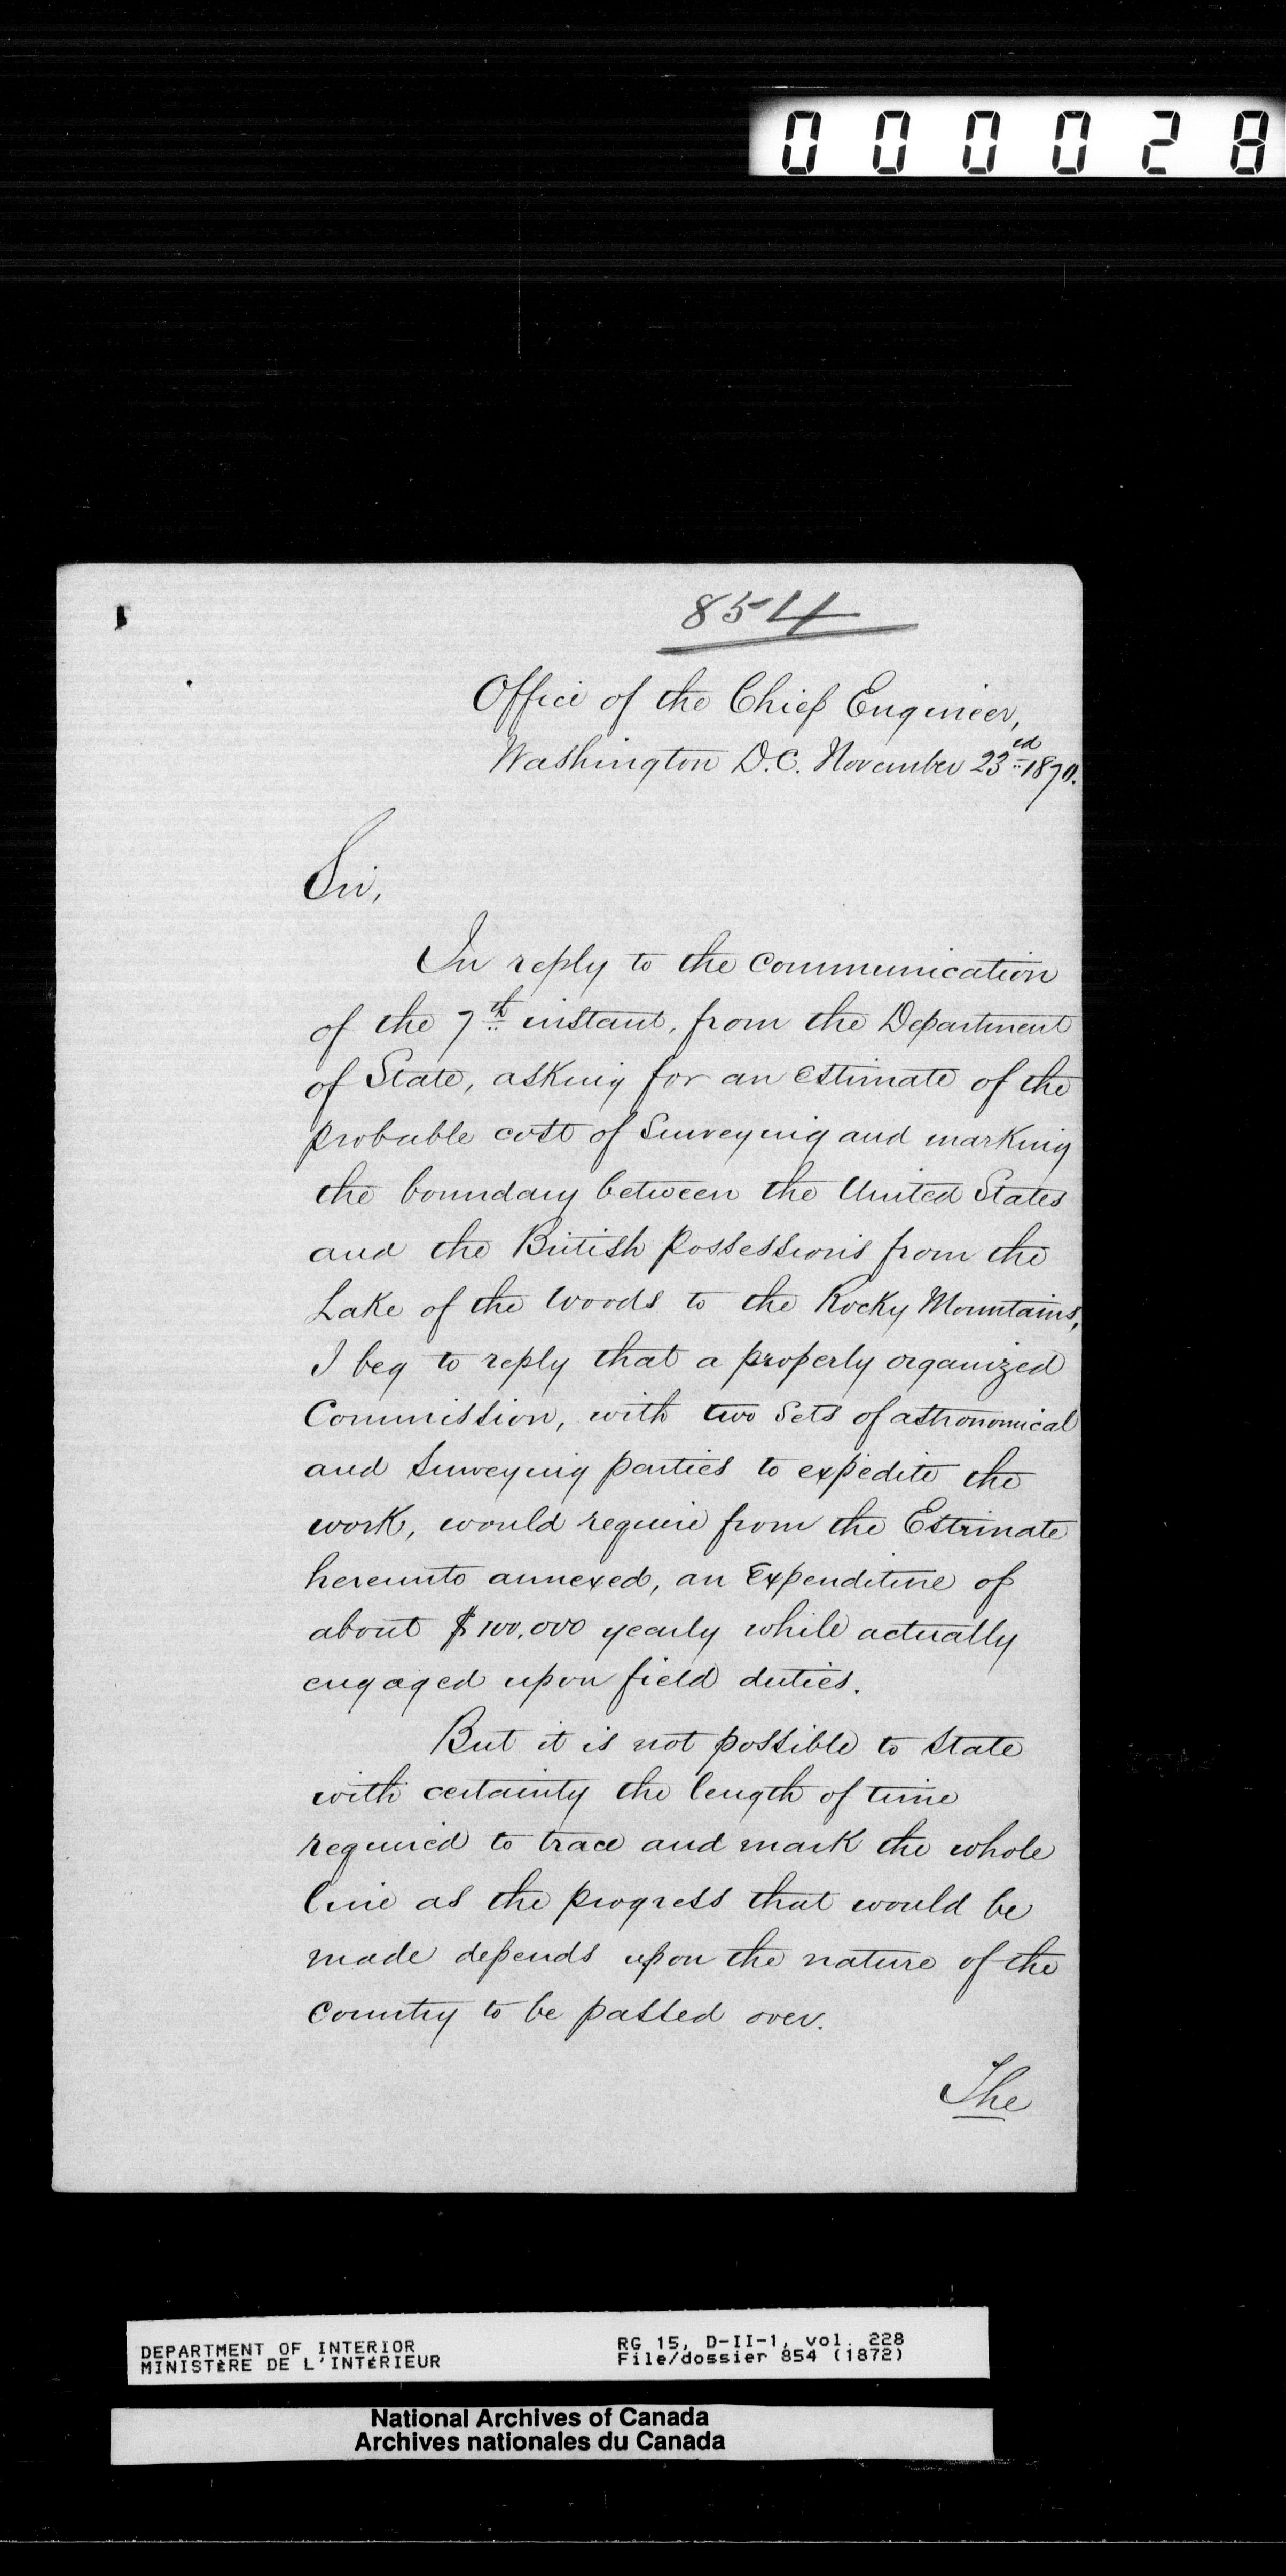 000028
854
Office of the Chief Engineer,
Washington D.C. November 23rd 1870.
Sir,
In reply to the Communication
of the 7th instant, from the Department
of State, asking for an Estimate of the
probable cost of Surveying and marking
the boundary between the United States
and the British Possessions from the
Lake of the Woods to the Rocky Mountains,
I beg to reply that a properly organized
Commission, with two Sets of astronomical
and Surveying parties to expedite the
work, would require from the Estimate
hereunto annexed, an Expenditure of
about $100,000 yearly while actually
engaged upon field duties.
But it is not possible to State
with certainty the length of time
required to trace and mark the whole
line as the progress that would be
made depends upon the nature of the
Country to be passed over.
The
DEPARTMENT OF INTERIOR
MINISTÈRE DE L'INTÉRIEUR
RG 15, D-II-1, vol. 228
File/dossier 854 (1872)
National Archives of Canada
Archives nationales du Canada